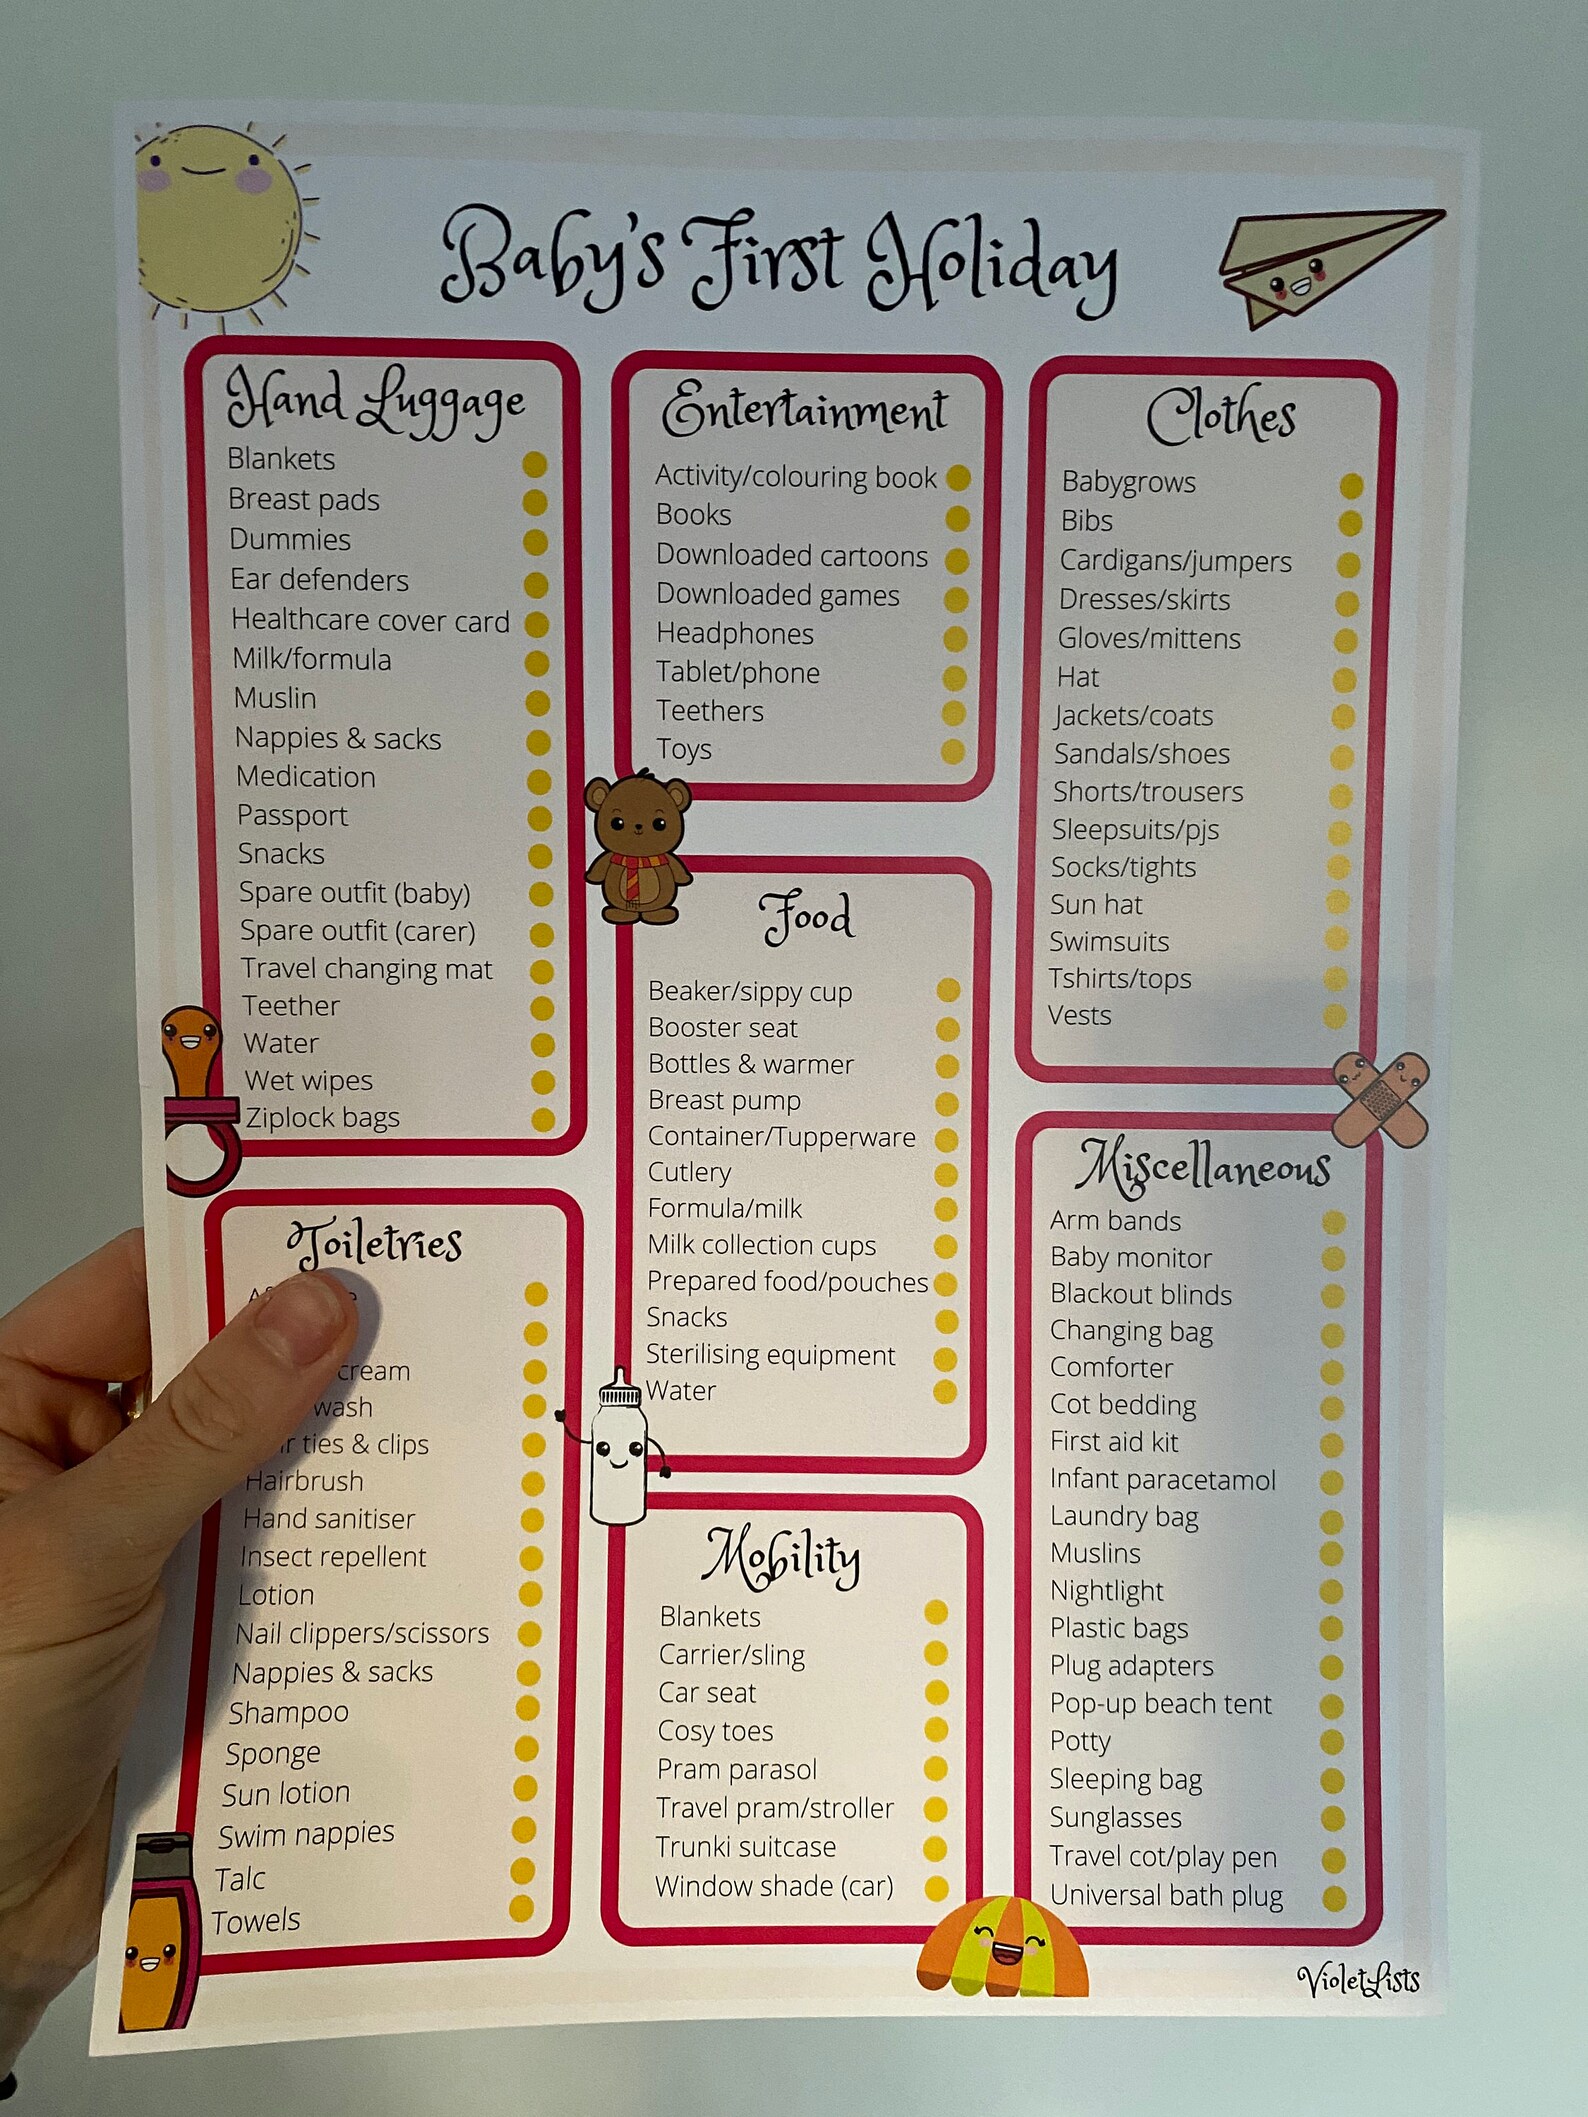 Baby's First Holiday
Hand Luggage
Blankets
Breast pads
Dummies
Ear defenders
Healthcare cover card
Milk/formula
Muslin
Nappies & sacks
Medication
Passport
Snacks
Spare outfit (baby)
Spare outfit (carer)
Travel changing mat
Teether
Water
Wet wipes
Ziplock bags
Toiletries
cream
wash
ties & clips
Hairbrush
Hand sanitiser
Insect repellent
Lotion
Nail clippers/scissors
Nappies & sacks
Shampoo
Sponge
Sun lotion
Swim nappies
Talc
Towels
Entertainment
Activity/colouring book
Books
Downloaded cartoons
Downloaded games
Headphones
Tablet/phone
Teethers
Toys
Food
Beaker/sippy cup
Booster seat
Bottles & warmer
Breast pump
Container/Tupperware
Cutlery
Formula/milk
Milk collection cups
Prepared food/pouches
Snacks
Sterilising equipment
Water
Mobility
Blankets
Carrier/sling
Car seat
Cosy toes
Pram parasol
Travel pram/stroller
Trunki suitcase
Window shade (car)
Clothes
Babygrows
Bibs
Cardigans/jumpers
Dresses/skirts
Gloves/mittens
Hat
Jackets/coats
Sandals/shoes
Shorts/trousers
Sleepsuits/pjs
Socks/tights
Sun hat
Swimsuits
Tshirts/tops
Vests
Miscellaneous
Arm bands
Baby monitor
Blackout blinds
Changing bag
Comforter
Cot bedding
First aid kit
Infant paracetamol
Laundry bag
Muslins
Nightlight
Plastic bags
Plug adapters
Pop-up beach tent
Potty
Sleeping bag
Sunglasses
Travel cot/play pen
Universal bath plug
VioletLists